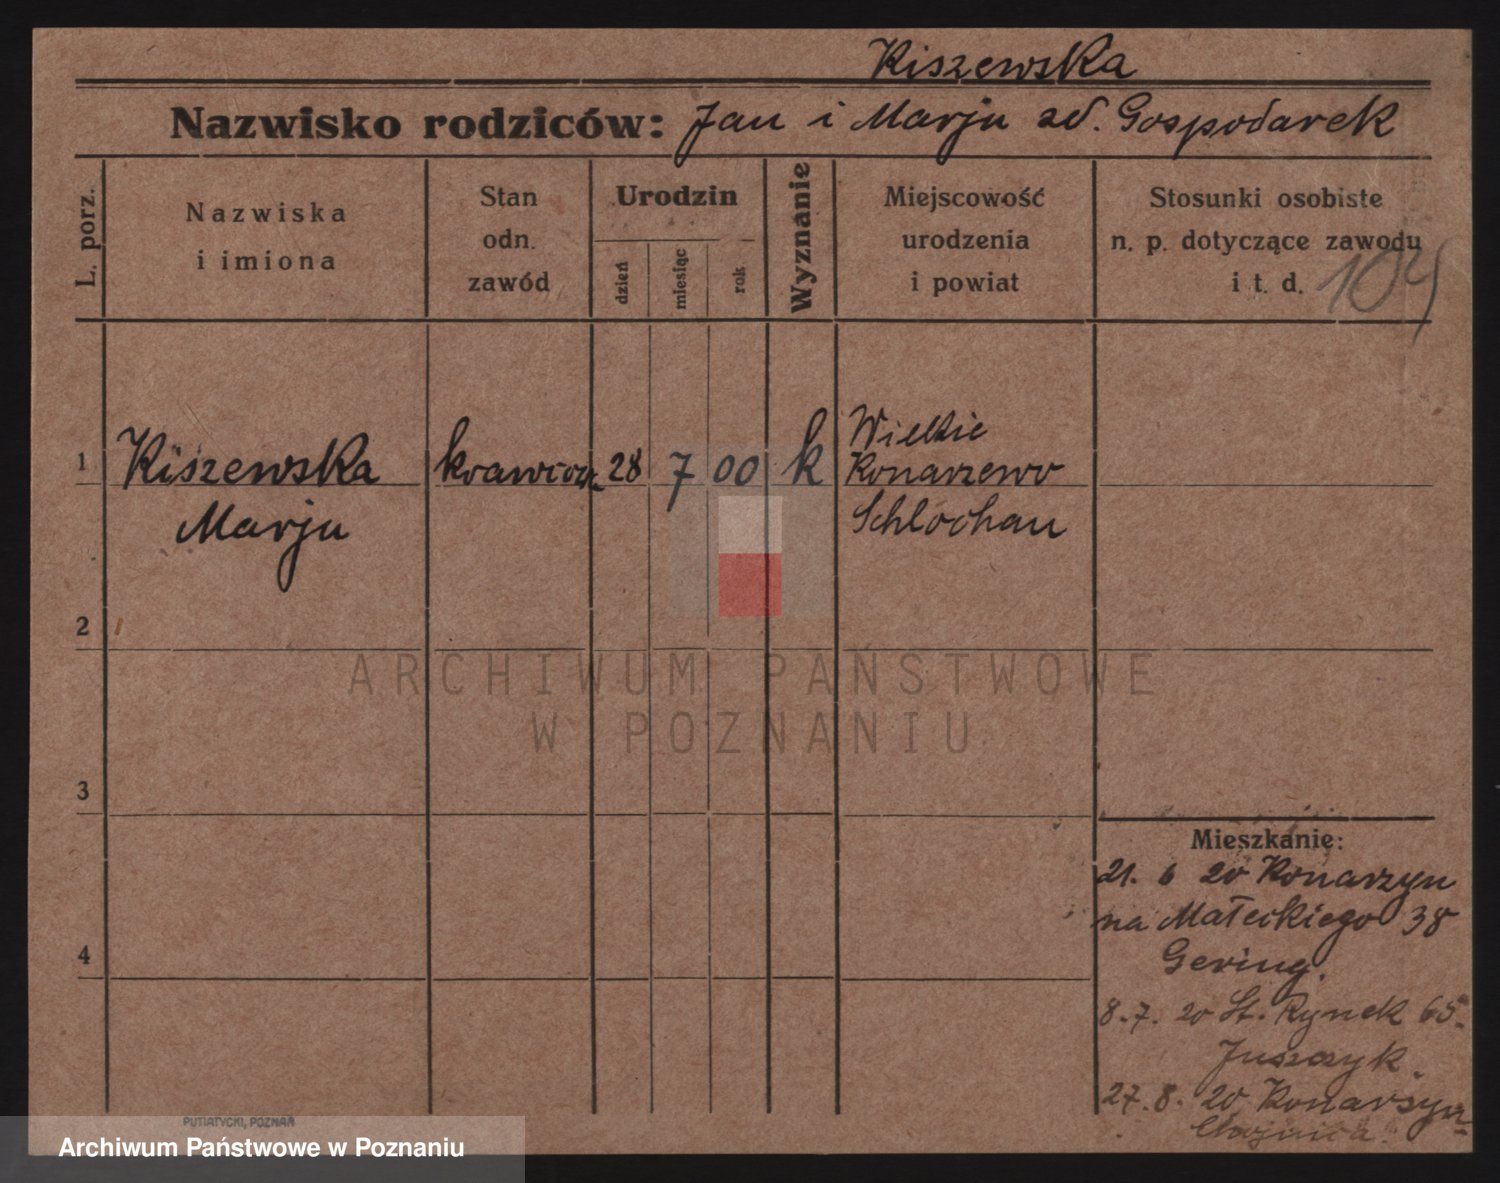 Kiszewska
Nazwisko rodziców: Jan i Marja zd. Gospodarek
L. porz.
Nazwiska
i imiona
Stan
odn.
zawód
Urodzin
dzień
miesiąc
rok
Wyznanie
Miejscowość
urodzenia
i powiat
Stosunki osobiste
n. p. dotyczące zawodu
i t. d.
104
1
Kiszewska
Marja
28 7 00 k
Wielkie
Konarzewo
Schlochau
2
3
4
Mieszkanie:
21. 6 20 Konarzyn
na Małeckiego 38
Gering.
8. 7. 20 St. Rynek 65.
Juszczyk.
27. 8. 20 Konarzyn
ARCHIWUM PAŃSTWOWE
W POZNANIU
PUTIATYCKI, POZNAŃ
Archiwum Państwowe w Poznaniu